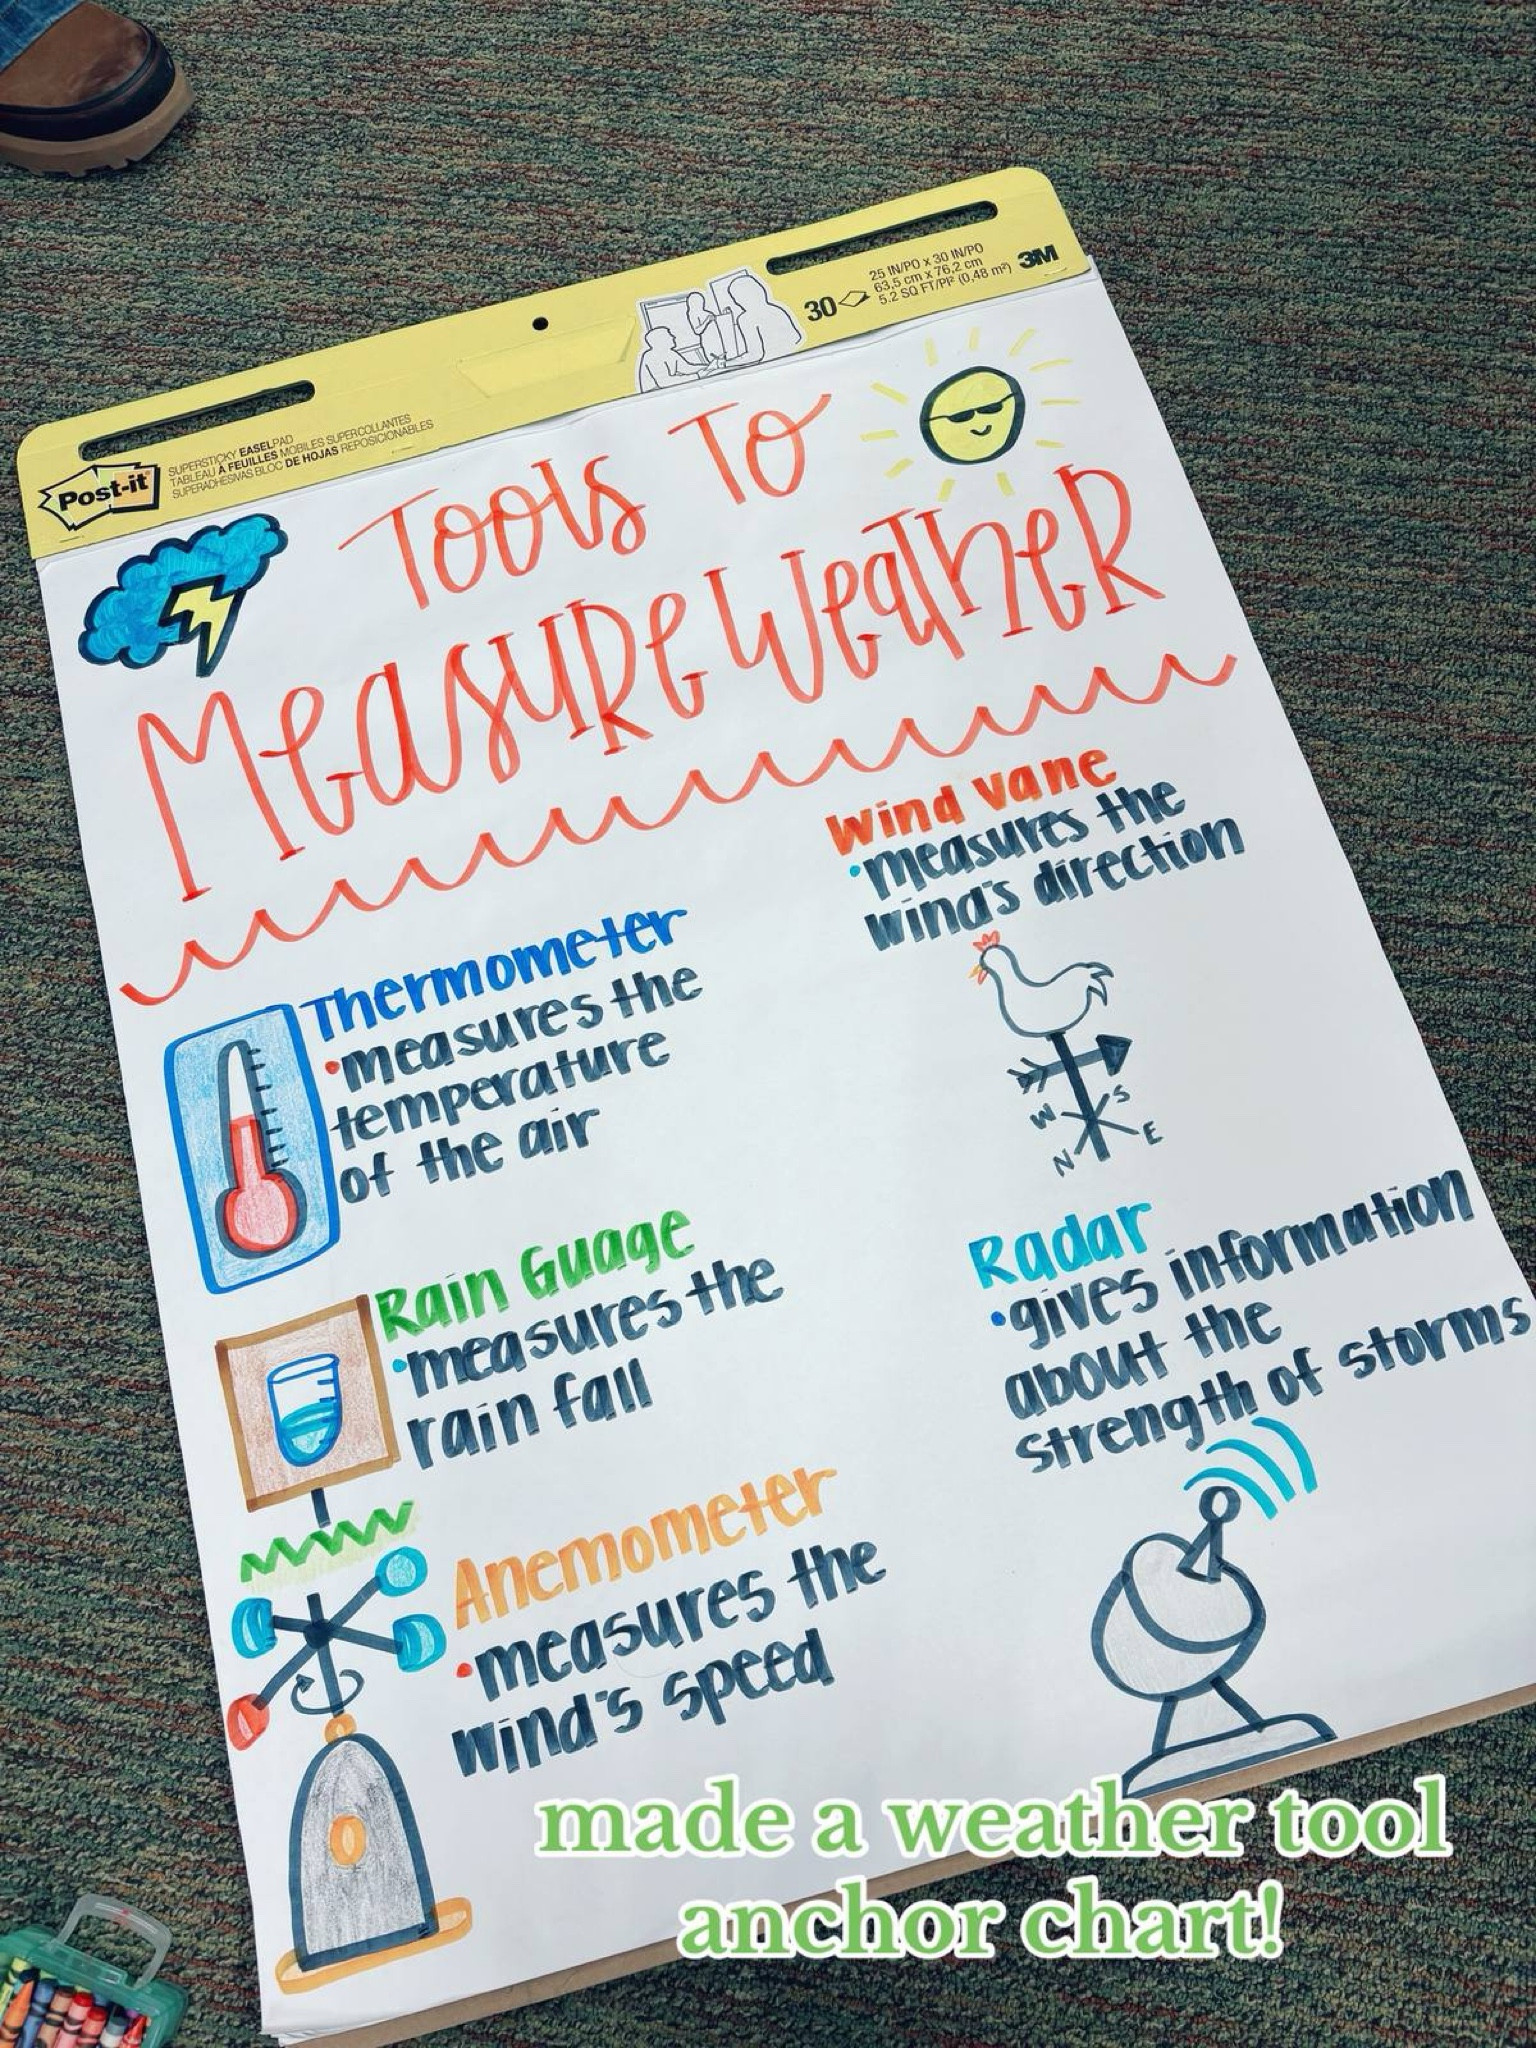 25 IN/PO x 30 IN/PO
63,5 cm x 76,2 cm
5.2 SQ FT/PI² (0,48 m²)
30
3M
Post-it
SUPERSTICKY EASELPAD
TABLEAU À FEUILLES MOBILES SUPERCOLLANTES
SUPERADHESIVAS BLOC DE HOJAS REPOSICIONABLES
Tools To
Measure Weather
Thermometer
•measures the
temperature
of the air
Rain Guage
•measures the
rain fall
Anemometer
•measures the
wind's speed
Wind Vane
•measures the
wind's direction
W S
N E
Radar
•gives information
about the
strength of storms
made a weather tool
anchor chart!